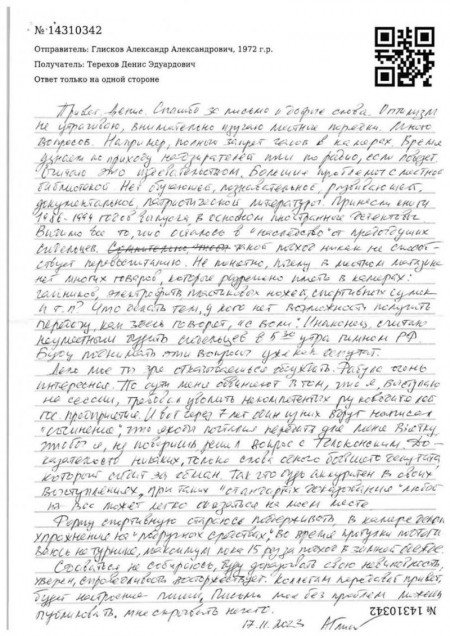 № 14310342
Отправитель: Глисков Александр Александрович, 1972 г.р.
Получатель: Терехов Денис Эдуардович
Ответ только на одной стороне
Привет, Денис. Спасибо за письмо и добрые слова. Оптимизм
не утрачиваю, внимательно изучаю местные порядки. Много
вопросов. Например, полный запрет часов в камерах. Время
узнаем по приходу надзирателей или по радио, если повезет.
Считаю это издевательством. Большая проблема с местной
библиотекой. Нет обучающей, познавательной, развивающей,
документальной, патриотической литературы. Принесли книги
1986-1994 годов выпуска, в основном иностранные детективы.
Видимо все то, что осталось в "наследство" от предыдущих
сидельцев. такой подход никак не способ-
ствует перевоспитанию. Не понятно, почему в местном магазине
нет многих товаров, которые разрешено иметь в камерах:
кипятильников, пластиковых ножей, спортивных сумок
и т.п? Что делать тем, у кого нет возможность получить
передачу, как здесь говорят, "с воли". И наконец, считаю
неуместным будить сидельцев в 5 30 утра гимном РФ.
Буду поднимать эти вопросы уже как депутат.
Дело мне ты зря отказываешься обсуждать. Фабула очень
интересная. По сути меня обвиняют в том, что я, выступая
на сессии, требовал уволить некомпетентных руководителей
гос. предприятие. И вот через 7 лет один из них вдруг написал
"сочинение", что якобы потом передал для меня взятку,
чтобы я, не повышал решил вопрос с Ко-
казательств никаких, только слова одного бывшего депутата,
который сидит за обман. Так что будь аккуратен в своих
выступлениях, при таких "стандартах доказывания" любой
из Вас может легко оказаться на моем месте.
Форму спортивную стараюсь поддерживать. В камере делаю
упражнения на "подручных средствах", во время прогулки подтяги-
ваюсь на турнике, максимум пока 15 раз за подход в зимней одежде.
Сдаваться не собираюсь, буду доказывать свою невиновность,
уверен, справедливость восторжествует. Коллегам передавай привет,
будет настроение пиши. Письмо мое без проблем можешь
публиковать. Мне скрывать нечего.
17.11.2023
№ 14310342